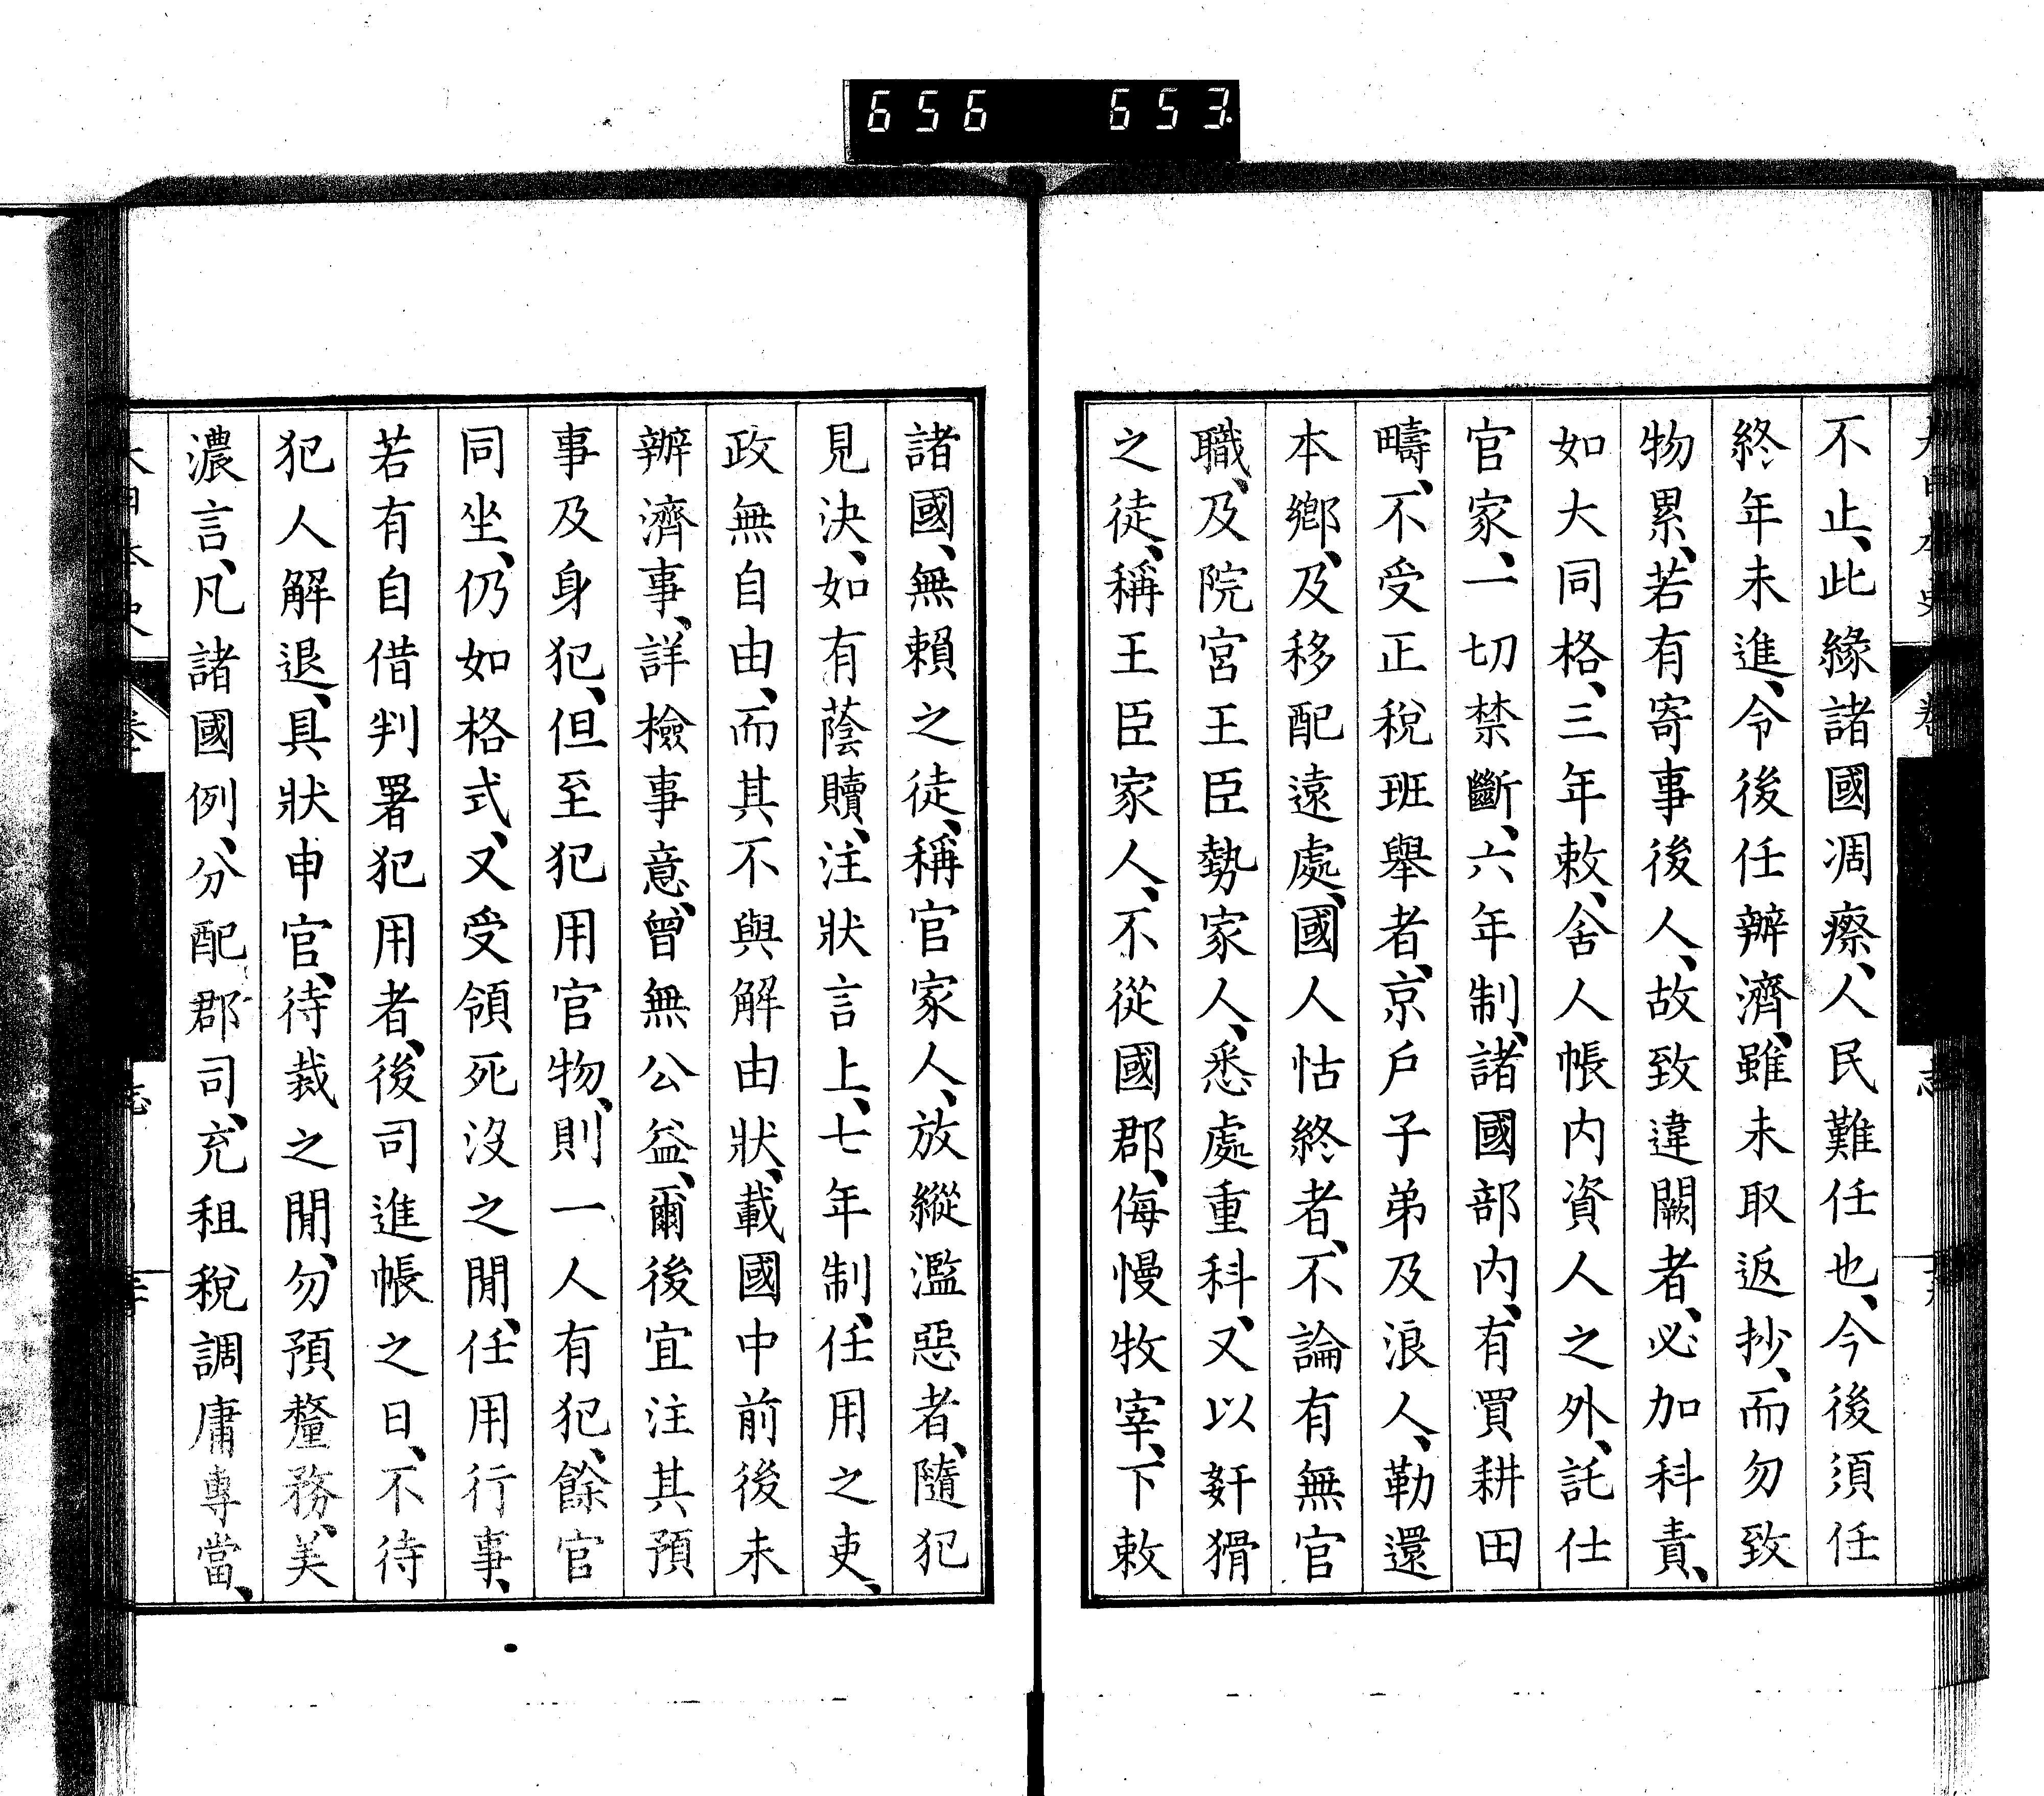 656 653
不止、此緣諸國凋瘵、人民難任也、今後須任
終年未進、令後任辨濟、雖未取返抄、而勿致
物累、若有寄事後人、故致違闕者、必加科責、
如大同格、三年敕、舍人帳内資人之外、託仕
官家、一切禁斷、六年制、諸國部内、有買耕田
疇、不受正稅班舉者、京戶子弟及浪人、勒還
本鄉、及移配遠處、國人怙終者、不論有無官
職、及院宮王臣勢家人、悉處重科、又以姧猾
之徒、稱王臣家人、不從國郡、侮慢牧宰、下敕
諸國、無賴之徒、稱官家人、放縱濫惡者、隨犯
見決、如有蔭贖、注狀言上、七年制、任用之吏、
政無自由、而其不與解由狀、載國中前後未
辨濟事、詳檢事意、曾無公益、爾後宜注其預
事及身犯、但至犯用官物、則一人有犯、餘官
同坐、仍如格式、又受領死沒之閒、任用行事、
若有自借判署犯用者、後司進帳之日、不待
犯人解退、具狀申官、待裁之閒、勿預釐務、美
濃言、凡諸國例、分配郡司、充租稅調庸專當、